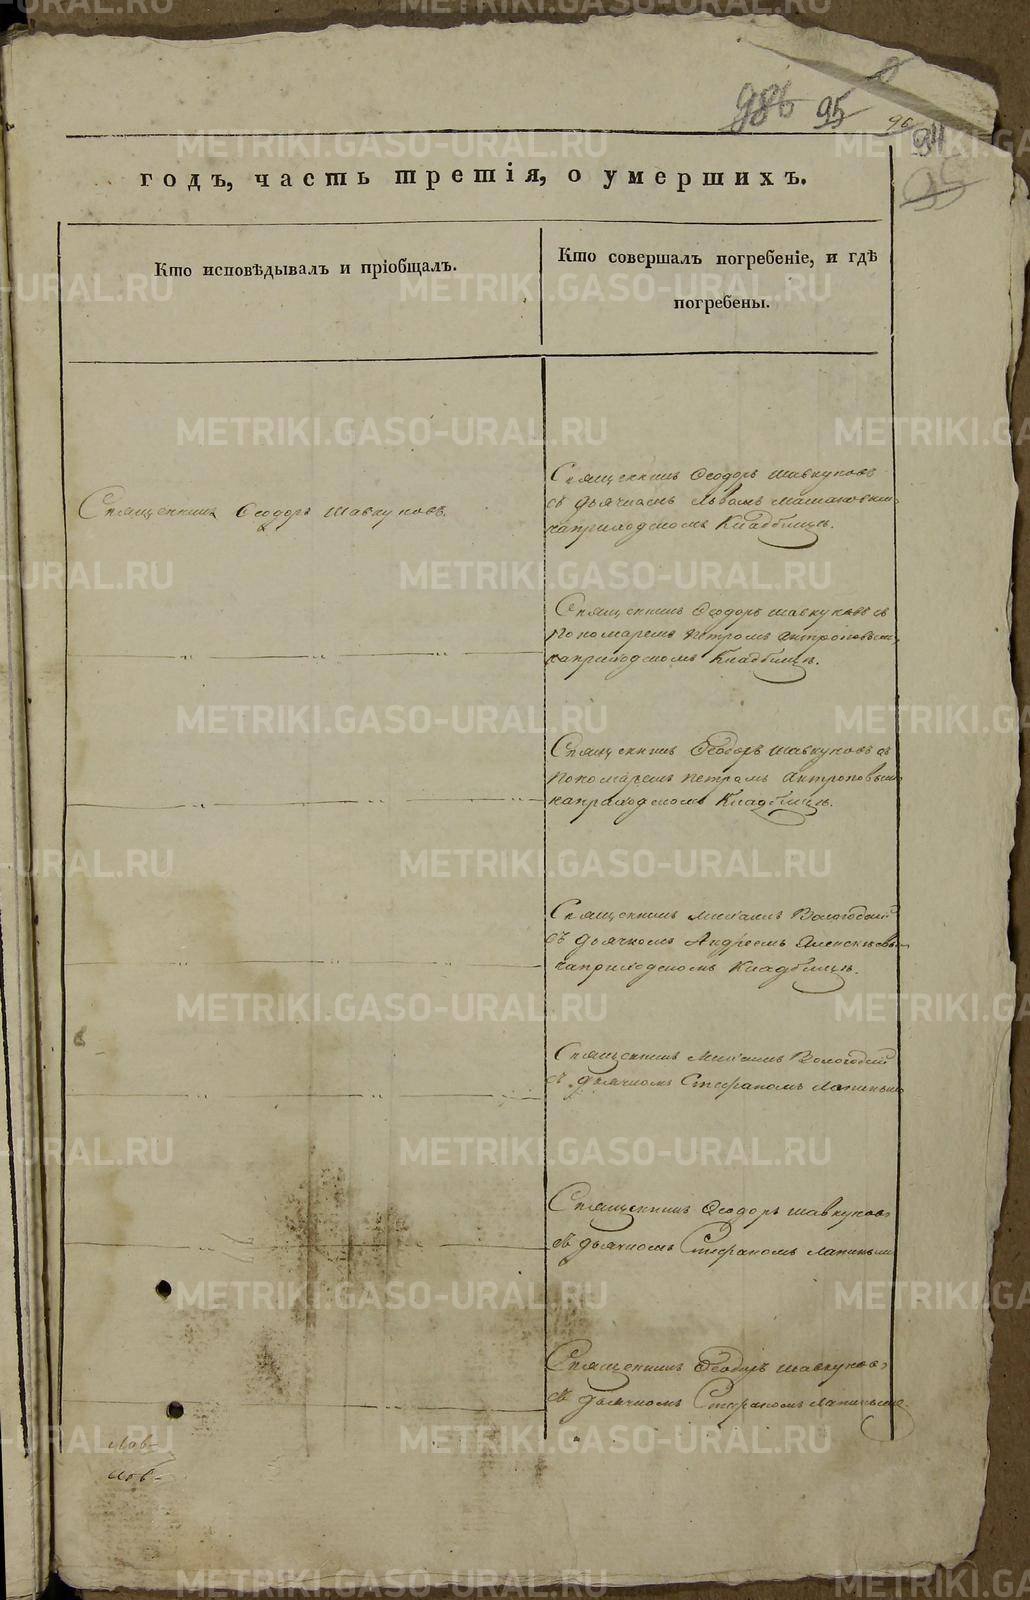 986 95 96 94
95
годъ, часть третія, о умершихъ.
Кто исповѣдывалъ и пріобщалъ.
Кто совершалъ погребеніе, и гдѣ
погребены.
Священникъ Ѳеодоръ Шавкуновъ.
Священникъ Ѳеодоръ Шавкуновъ
съ дьячкомъ Львомъ
на приходскомъ кладбищѣ.
Священникъ Ѳеодоръ Шавкуновъ съ
пономаремъ Петромъ Антроповымъ
на приходскомъ кладбищѣ.
Священникъ Ѳеодоръ Шавкуновъ съ
пономаремъ Петромъ Антроповымъ
на приходскомъ кладбищѣ.
Священникъ Михаилъ Вологодскій
съ дьячкомъ Андреемъ
на приходскомъ кладбищѣ.
Священникъ Михаилъ Вологодскій
съ дьячкомъ Стефаномъ Лапинымъ
Священникъ Ѳеодоръ Шавкуновъ
съ дьячкомъ Стефаномъ Лапинымъ
Священникъ Ѳеодоръ Шавкуновъ
съ дьячкомъ Стефаномъ Лапинымъ
METRIKI.GASO-URAL.RU